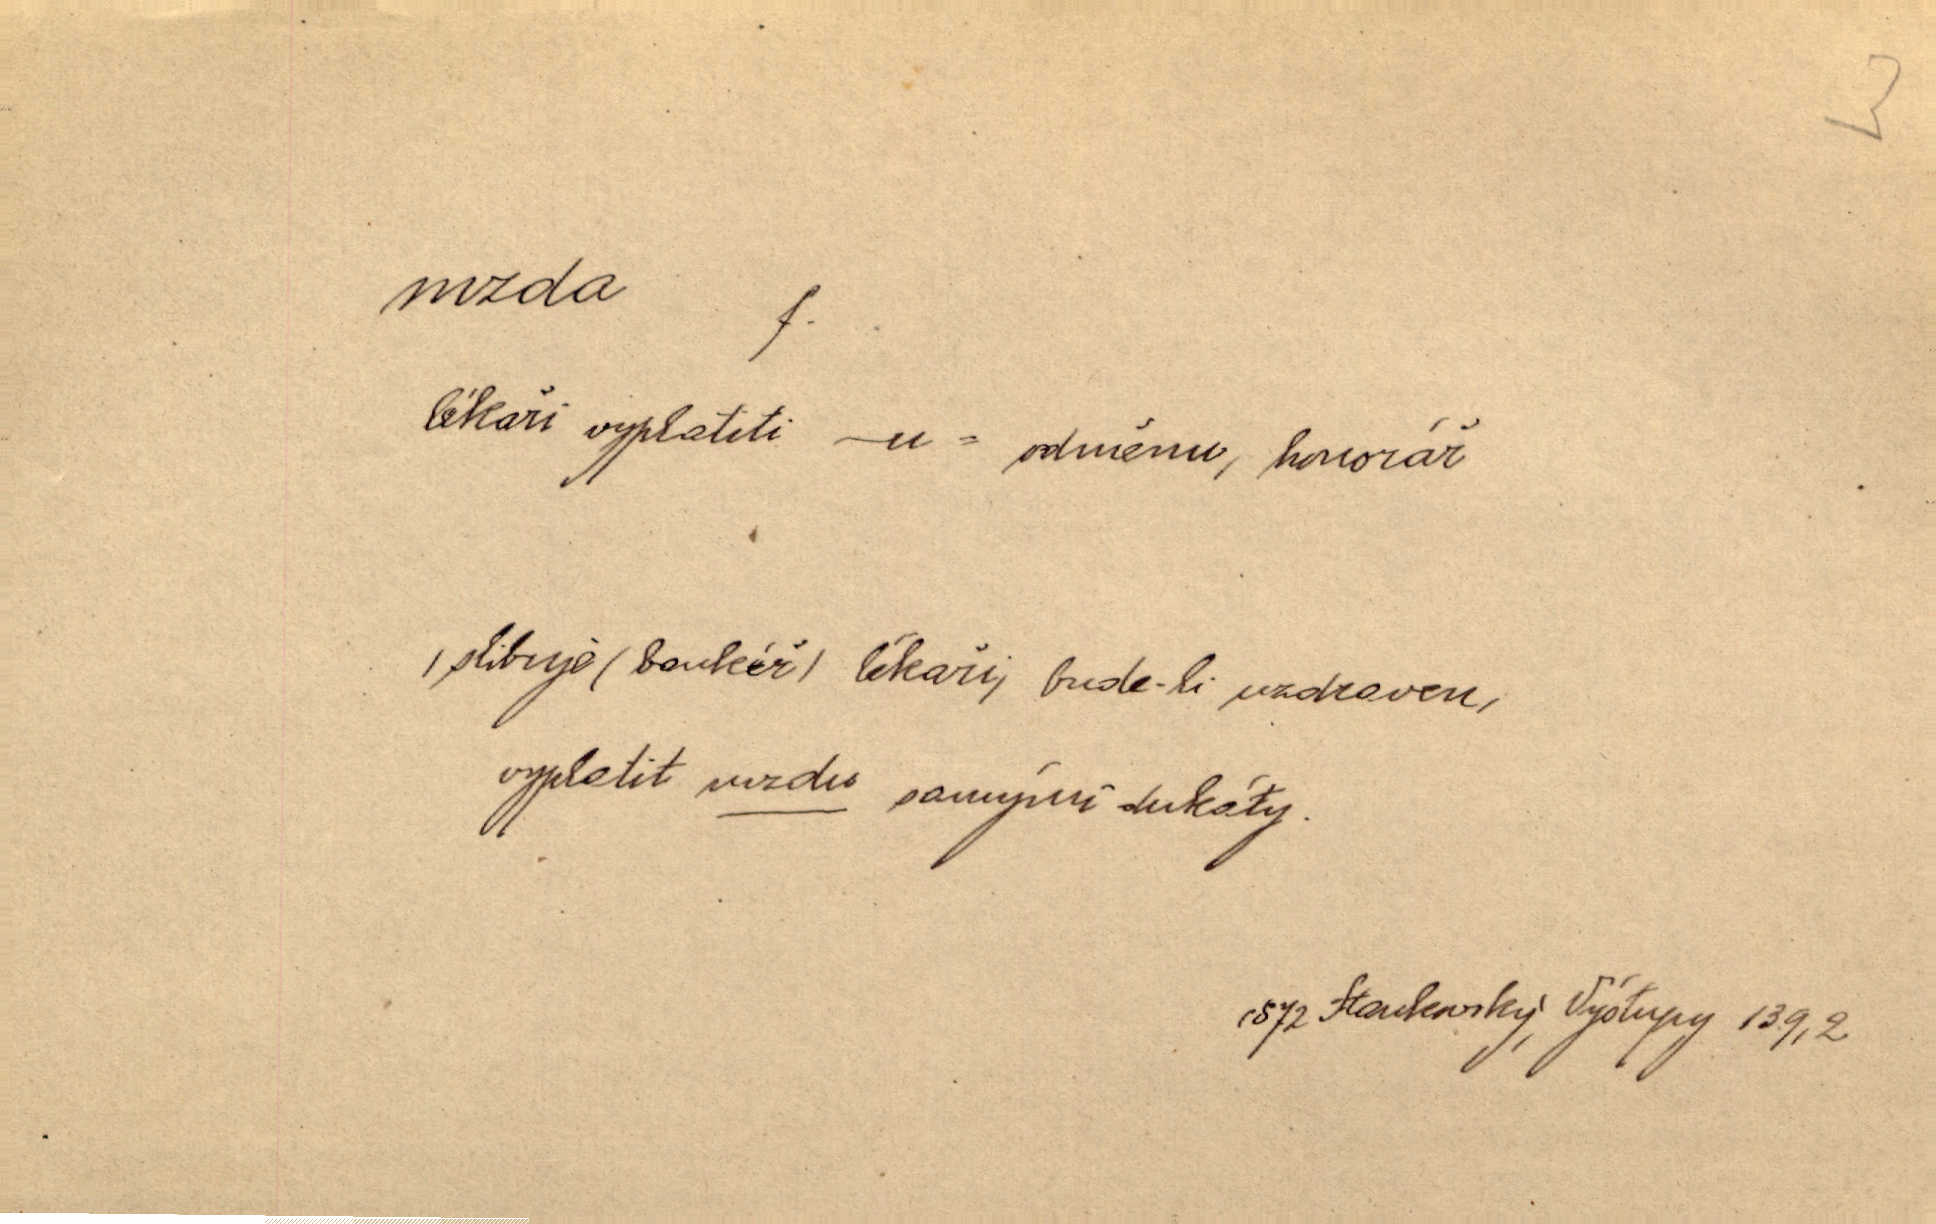 mzda f.
lékaři vyplatiti —u = odměnu, honorář
, slibuje (bankéř) lékaři, bude-li uzdraven,
vyplatit mzdu samými dukáty.
1872 Stankovský, Výstupy 139,2